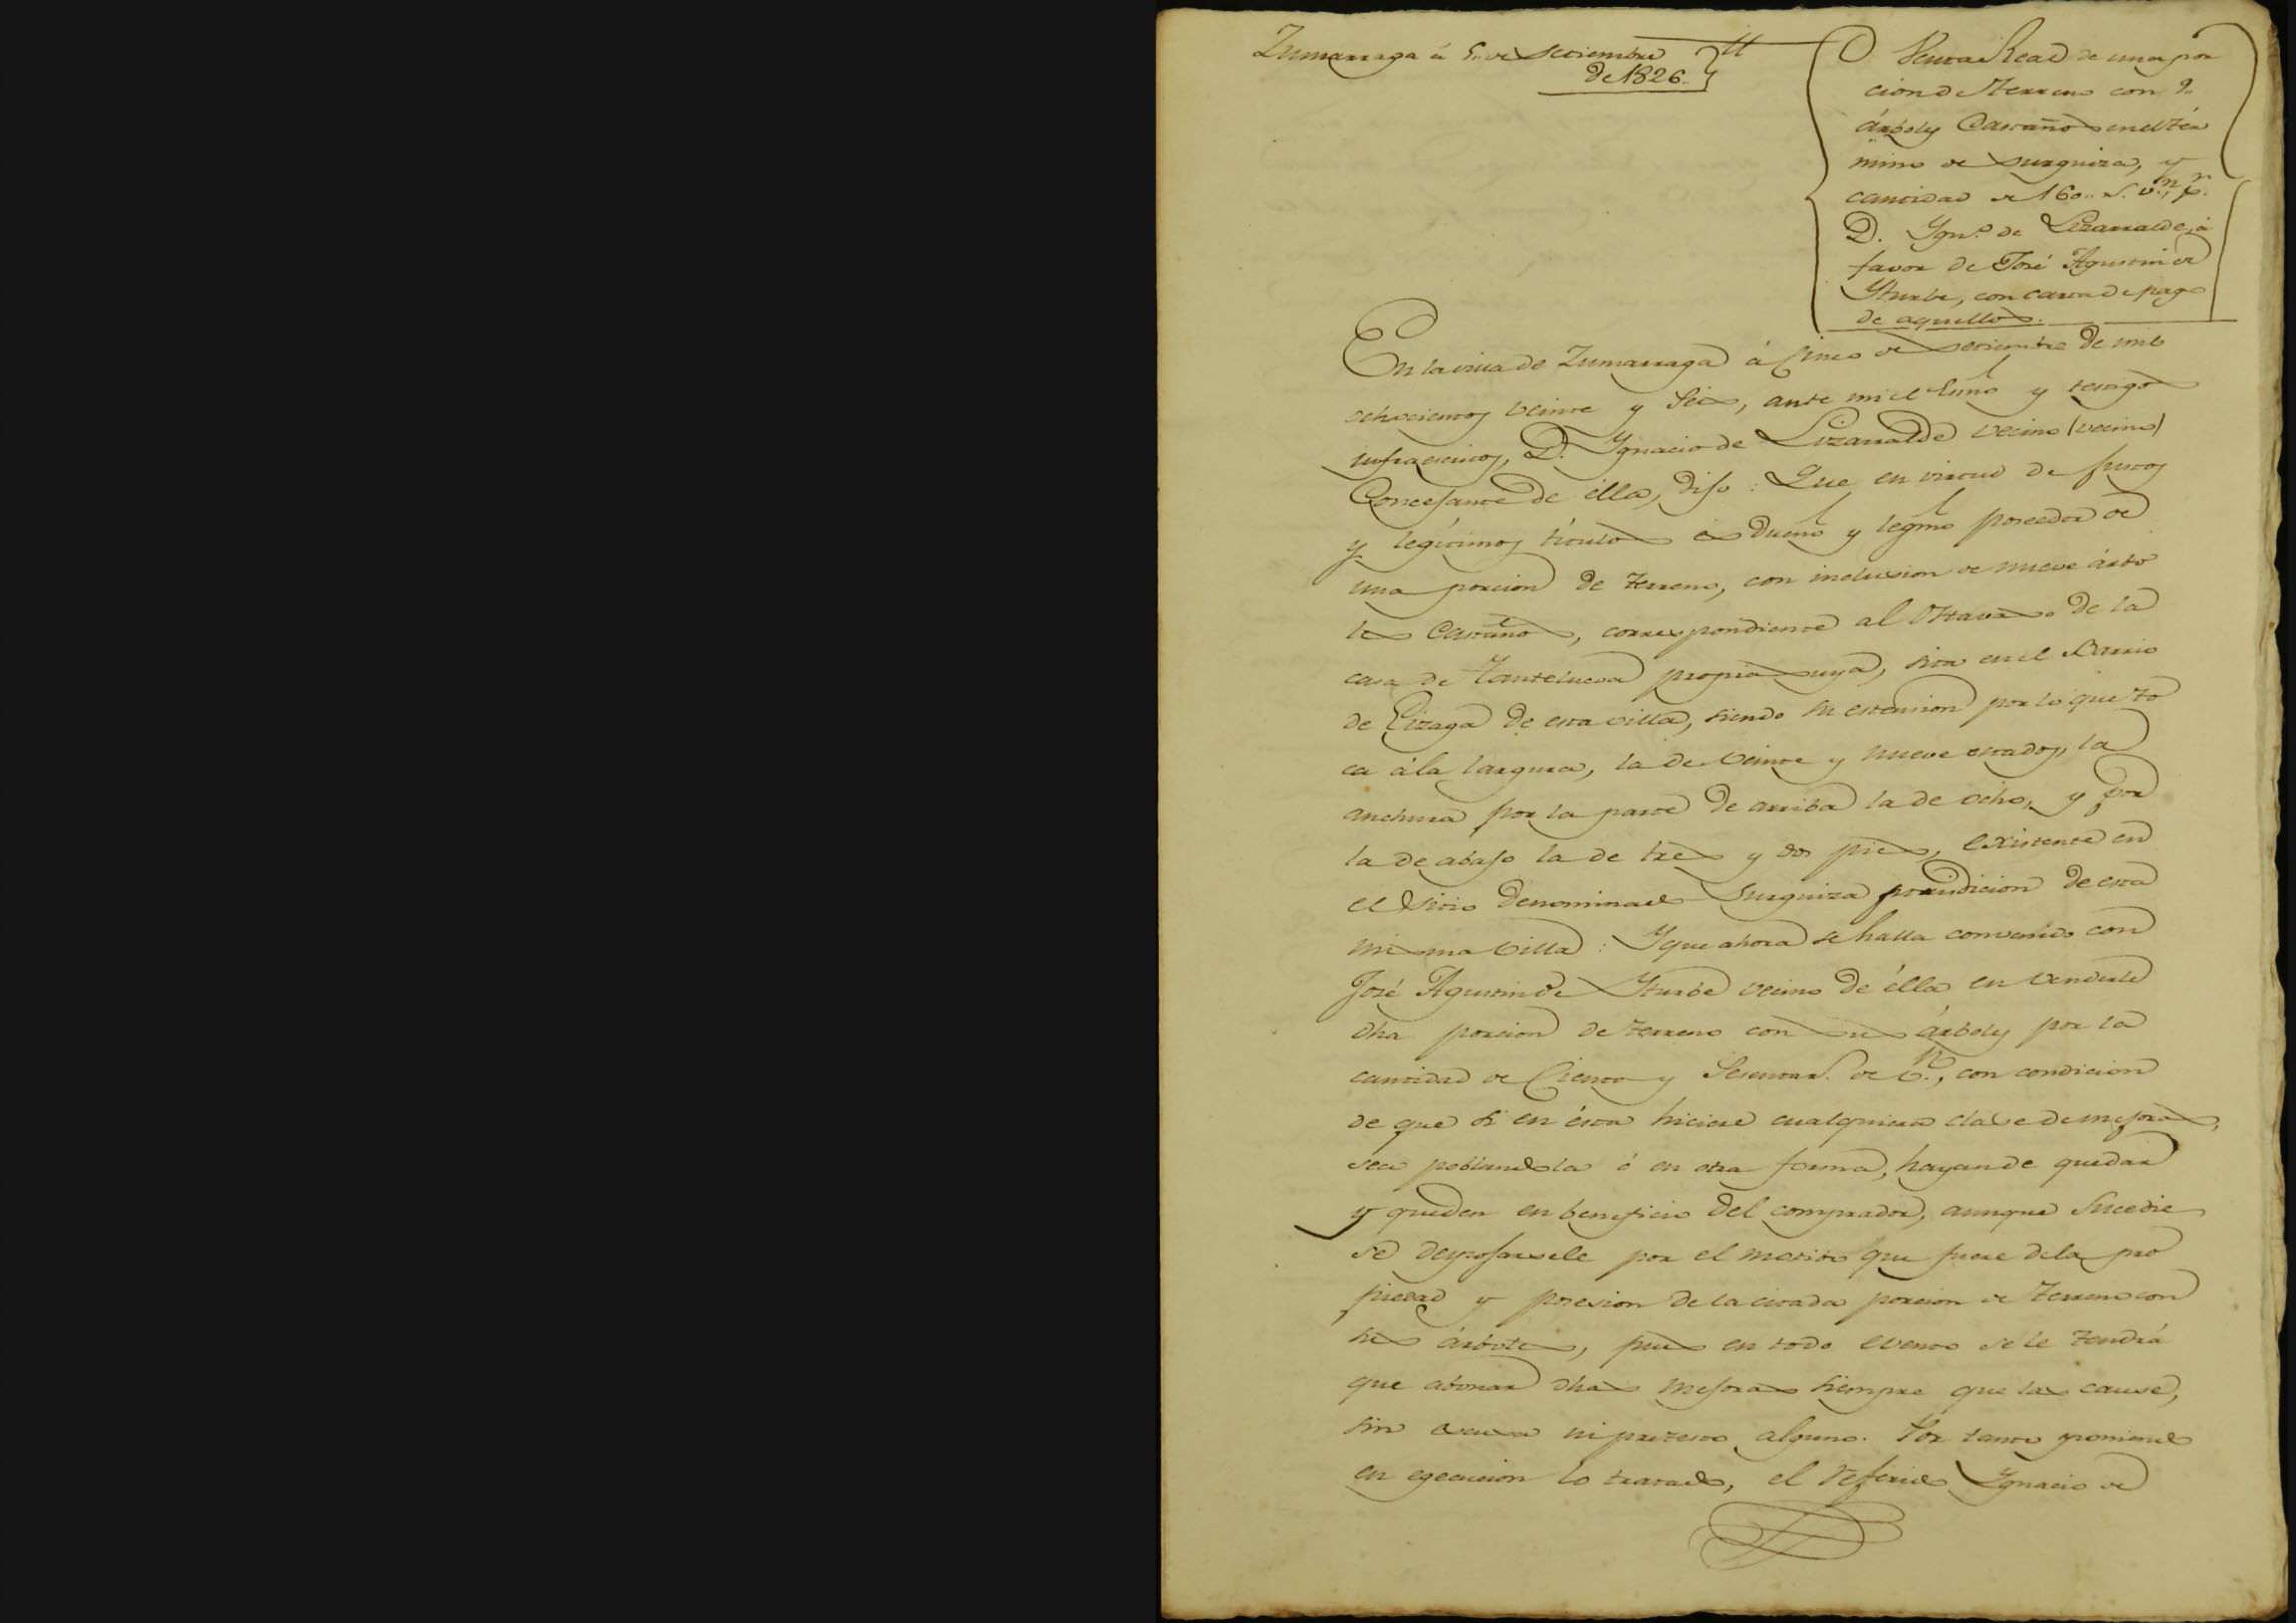 Zumarraga á 5.. de Setiembre
de 1826..
Venta Real de una por
cion de Terreno con 9..
árboles Castaños en el tér
mino de Surquiza, y
cantidad de 160.. r.s v.n, p.r
D. Ygn.o de Lizarralde, á
favor de José Agustin de
Yturbe, con carta de pago
de aquellos.
En la villa de Zumarraga á Cinco de Setiembre de mil
ochocientos veinte y Seis, ante mi el Esno y testigos
infraescritos, D. Ygnacio de Lizarralde vecino (vecino)
Concejante de élla, dijo: Que en virtud de justos
y legítimos títulos es dueño y legmo poseedor de
una porcion de terreno, con inclusion de nueve árbo
les Castaños, correspondiente al de la
casa de Zanteluesa propia suya, sita en el Barrio
de Eizaga de esta villa, siendo su estension por lo que to
ca á la largura, la de veinte y nueve estados, la
anchura por la parte de arriba la de ocho, y por
la de abajo la de tres y dos pies, existente en
el sitio denominado Surquiza jurisdicion de esta
misma villa: Y que ahora se halla convenido con
José Agustin de Yturbe vecino de élla en venderle
dha porcion de terreno con sus árboles por la
cantidad de Ciento y Sesenta r.s de v.n, con condicion
de que si en ésta hiciere cualquiera clase de mejoras,
sea poblandola ó en otra forma, hayan de quedar
y queden en beneficio del comprador, aunque Sucedie
se despojarsele por el motibo que fuere de la pro
piedad y posesion de la citada porcion de terreno con
sus árboles, pues en todo evento se le tendrá
que abonar dhas mejoras siempre que las cause,
sin escusa ni pretesto alguno. Por tanto poniendo
en egecucion lo tratado, el referido Ygnacio de